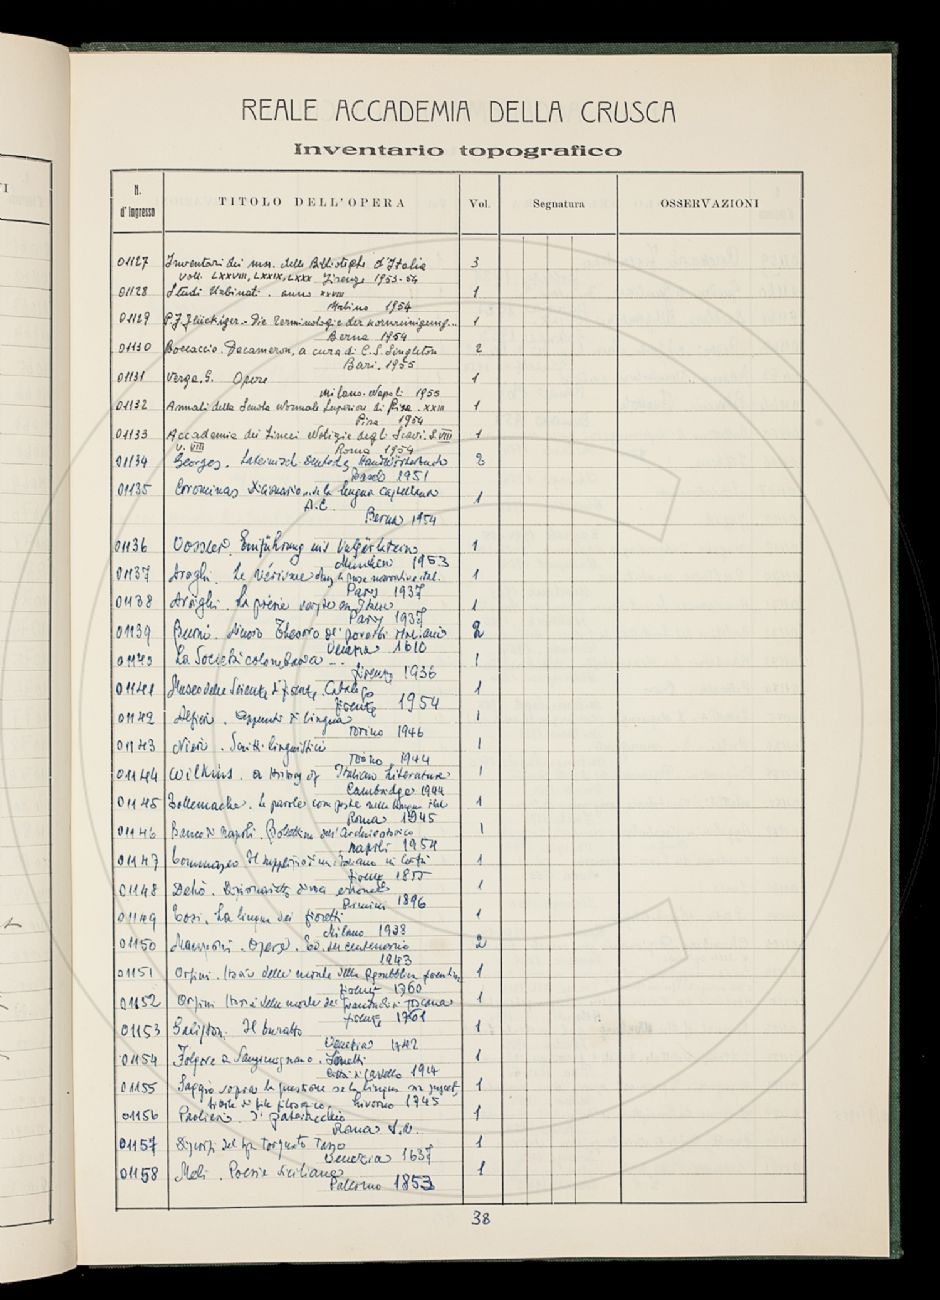 REALE ACCADEMIA DELLA CRUSCA
Inventario topografico
N. d'Ingresso TITOLO DELL'OPERA Vol. Segnatura OSSERVAZIONI
01127 Inventari dei mss. delle Biblioteche d'Italia 3
voll. LXXVIII, LXXIX, LXXX Firenze 1953-54
01128 Studi Urbinati. anno XXVIII 1
Urbino 1954
01129 P.J. Flückiger - Die Terminologie der Kornreinigung... 1
Berna 1954
01130 Boccaccio. Decameron, a cura di C.S. Singleton 2
Bari. 1955
01131 Verga. G. Opere 1
Milano-Napoli 1955
01132 Annali della Scuola Normale Superiore di Pisa. XXIII 1
Pisa 1954
01133 Accademia dei Lincei Notizie degli Scavi. S. VIII 1
v. VIII Roma 1954
01134 Georges. Lateinisch Deutsches Handwörterbuch 2
Basel 1951
01135 Corominas Diccionario de la lengua castellana 1
A.C.
Berna 1954
01136 Vossler. Einführung ins Vulgärlatein 1
München 1953
01137 Arrighi. Le vérisme dans la prose narrative ital. 1
Paris 1937
01138 Arrighi. La poésie vériste en Italie 1
Paris 1937
01139 Tesoro de' proverbi italiani 2
Venezia 1610
01140 La Società colombaria ... 1
Firenze 1936
01141 Museo delle Scienze di Firenze. Catalogo 1
Firenze 1954
01142 Alfieri. Appunti di lingua 1
Torino 1946
01143 Nievo. Scritti linguistici 1
Torino 1944
01144 Wilkins. A History of Italian Literature 1
Cambridge 1944
01145 Tollemache. Le parole composte nella lingua ital. 1
Roma 1945
01146 Banco di Napoli. Bollettino dell'Archivio storico 1
Napoli 1954
01147 Tommaseo Il supplizio d'un italiano in Corfù 1
Firenze 1855
01148 Dizionarietto 1
Rimini 1896
01149 Tosi. La lingua dei fioretti 1
Milano 1938
01150 Manzoni. Opere. Ed. del centenario 2
1943
01151 Orsini. Storia delle monete della Repubblica fiorentina 1
Firenze 1760
01152 Orsini Storia delle monete dei granduchi di Toscana 1
Firenze 1761
01153 Il buratto 1
Venezia 1742
01154 Folgore da Sangimignano. Sonetti 1
Città di Castello 1914
01155 Saggio sopra la questione se la lingua 1
Livorno 1745
01156 Paolieri. 1
Roma s.d.
01157 Discorsi del Sig. Torquato Tasso 1
Venezia 1637
01158 Meli. Poesie siciliane 1
Palermo 1853
38